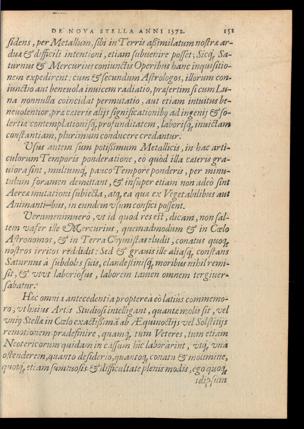 DE NOVA STELLA ANNI 1572. 151
sidens, per Metallum, sibi in Terris assimilatum nostræ ar-
dua & difficili intentioni, etiam subuenire posset; Sicq́; Sa-
turnus & Mercurius coniunctis Operibus hanc inquisitio-
nem expedirent: cum & secundum Astrologos, illorum con-
iunctio aut beneuola inuicem radiatio, præsertim si cum Lu-
na nonnulla coincidat permutatio, aut etiam intuitus be-
neuolentior, præ cæteris alijs significationibus ad ingenij & so-
lertiæ contemplationisq́; profunditatem, laborisq́; inuictam
constantiam, plurimum conducere credantur.
Usus autem sum potissimum Metallicis, in hac arti-
culorum Temporis ponderatione, eo quòd illa cæteris gra-
uiora sint, multumq́; pauco Tempore ponderis, per minu-
tulum foramen demittant, & insuper etiam non adeò sint
Aeris mutationi subiecta, atq́; ea quæ ex Vegetabilibus aut
Animantibus, in eundem usum confici possent.
Veruměnimuerò, ut id quod res est, dicam, non sal-
tem vafer ille Mercurius, quemadmodum & in Cœlo
Astronomos, & in Terra Chymistas eludit, conatus quoq́;
nostros irritos reddidit: Sed & grauis ille aliàsq́; constans
Saturnus à subdolis suis, clandestinisq́; moribus nihil remi-
sit, & vt vt laboriosus, laborem tamen omnem tergiuer-
sabatur.
Hæc omnia antecedentia propterea eò latiùs commemo-
ro, vt huius Artis Studiosi intelligant, quantæ molis sit, vel
vniq́; Stellæ in Cœlo exactissimā ab Æquinoctijs vel Solstitijs
remotionem prædefinire, quamq́; tum Veteres, tum etiam
Neotericorum quidam in cassum hîc laborârint, vtq́; vnà
ostenderem, quanto desiderio, quantoq́; conatu & molimine,
quotq́; etiam sumtuosis & difficultate plenis modis, ego quoq́;
idipsum